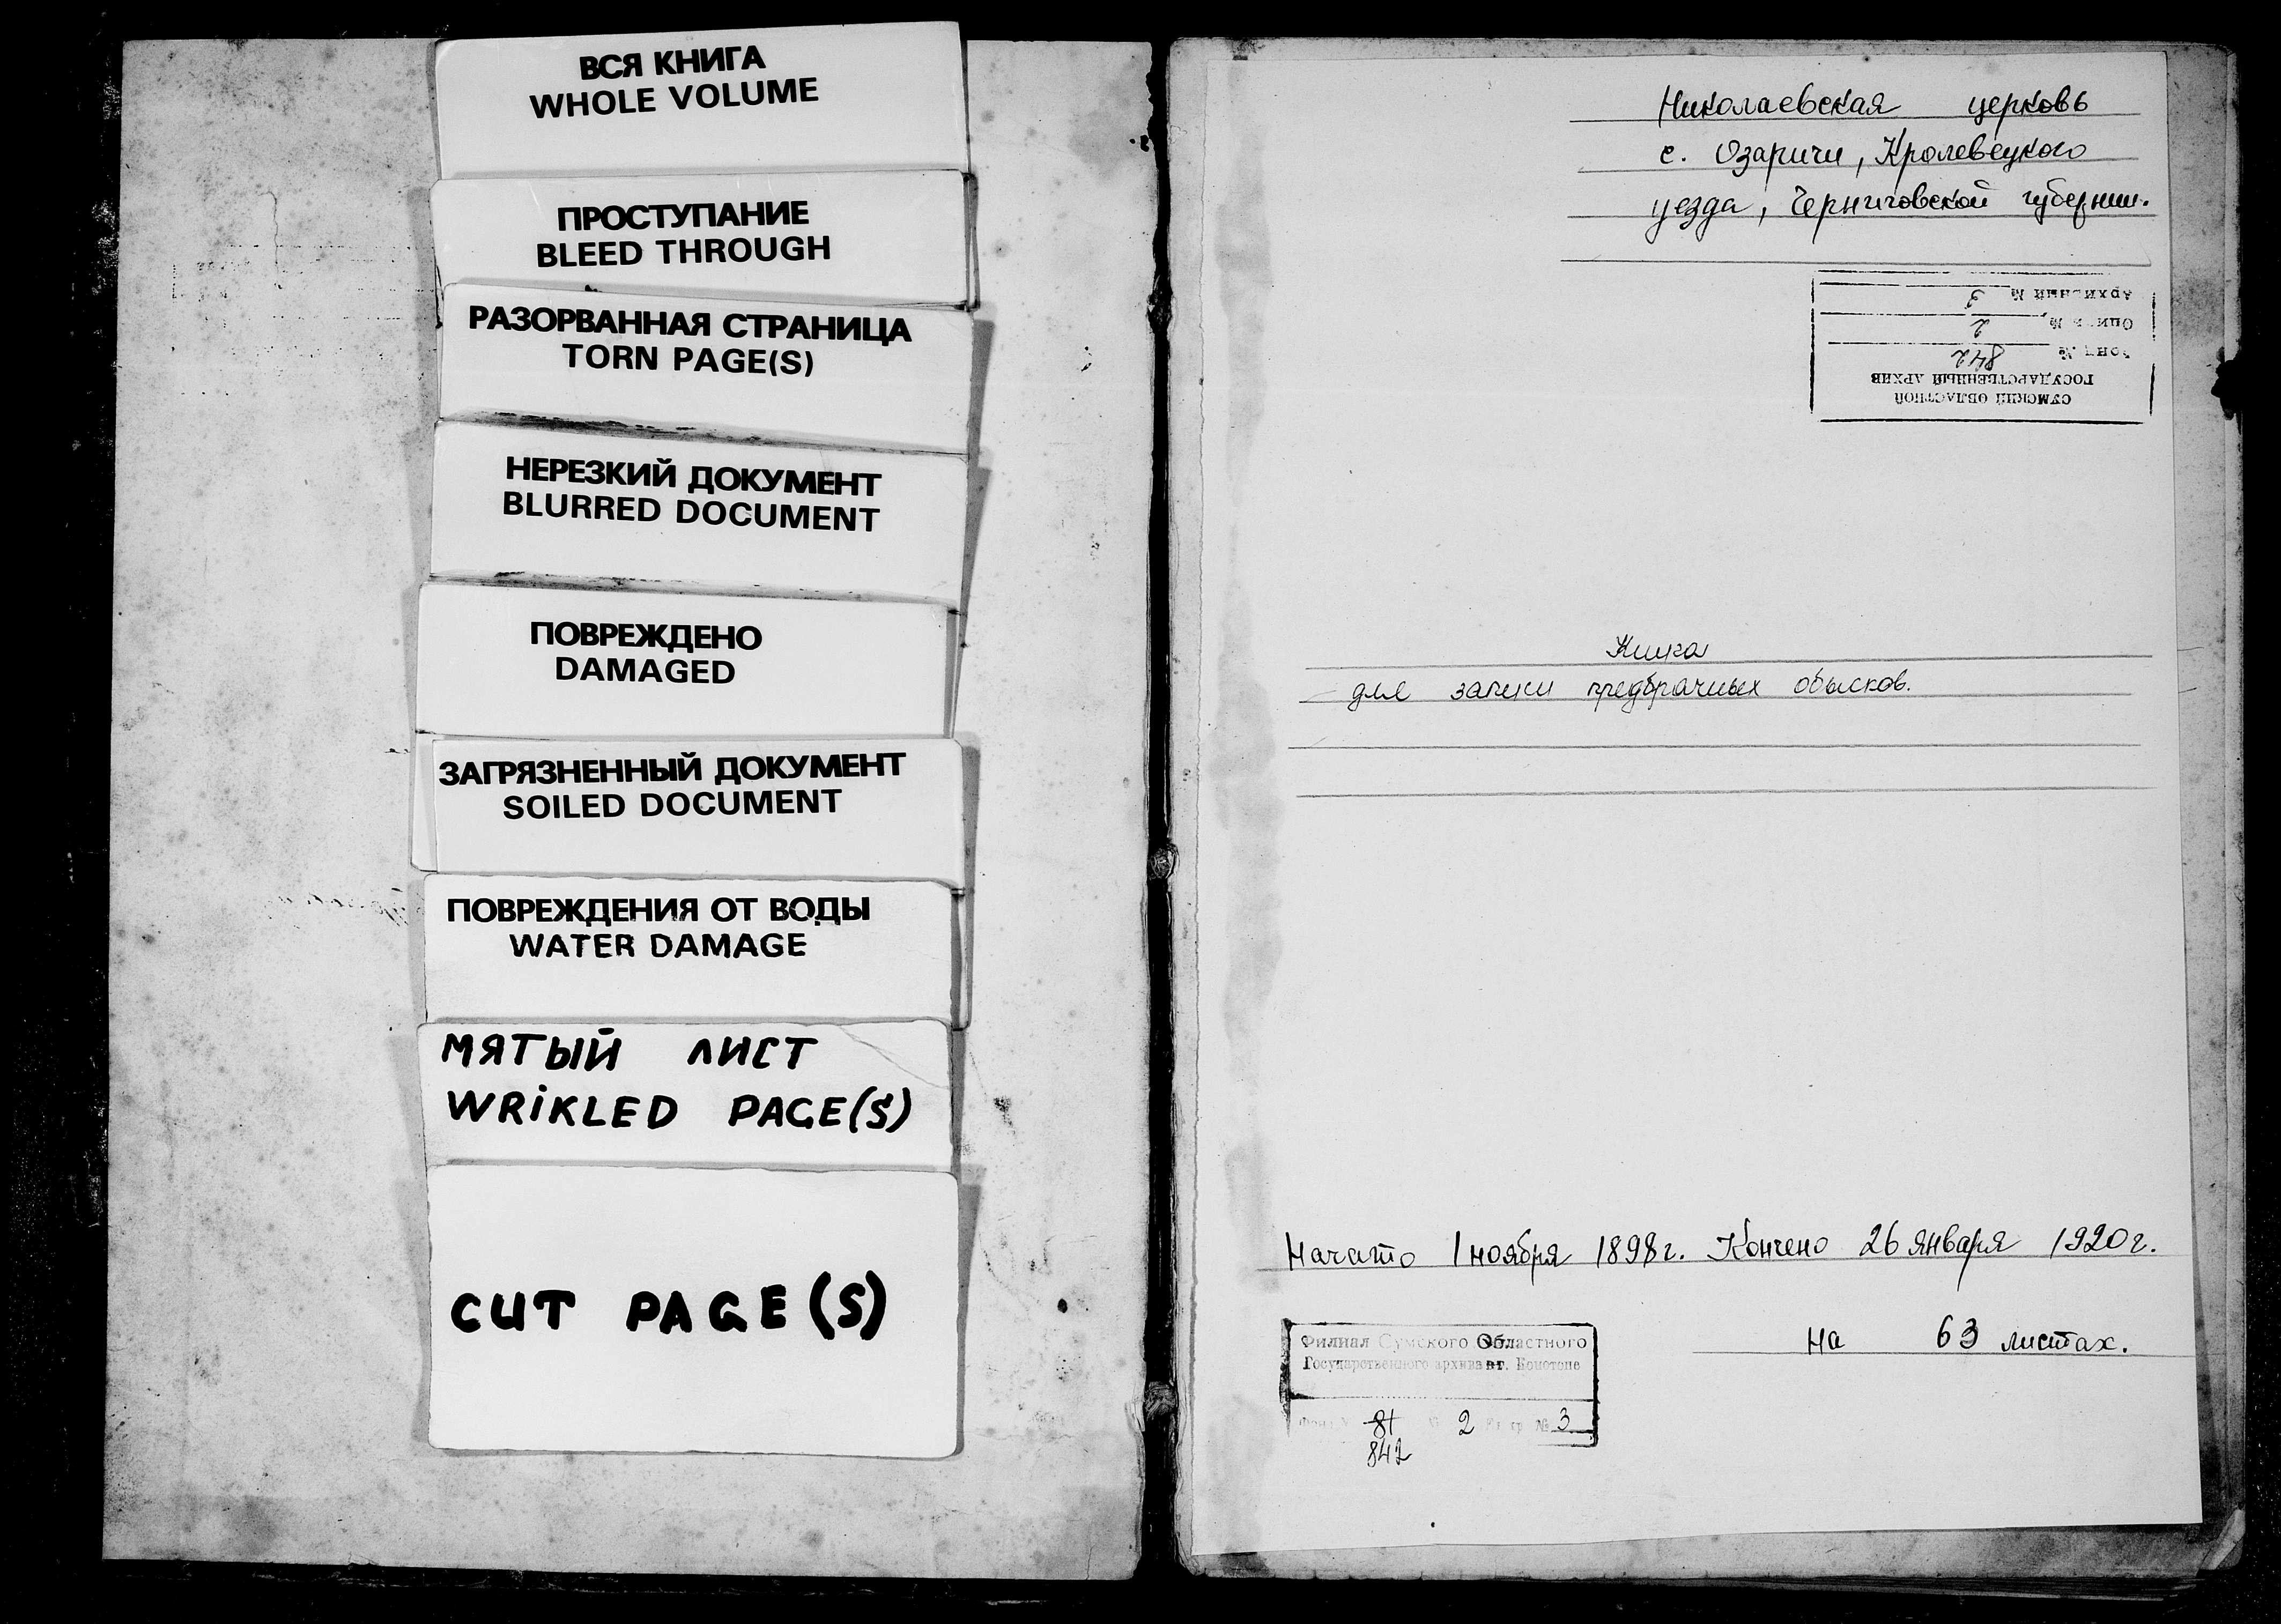 ВСЯ КНИГА
WHOLE VOLUME
ПРОСТУПАНИЕ
BLEED THROUGH
РАЗОРВАННАЯ СТРАНИЦА
TORN PAGE(S)
НЕРЕЗКИЙ ДОКУМЕНТ
BLURRED DOCUMENT
ПОВРЕЖДЕНО
DAMAGED
ЗАГРЯЗНЕННЫЙ ДОКУМЕНТ
SOILED DOCUMENT
ПОВРЕЖДЕНИЯ ОТ ВОДЫ
WATER DAMAGE
МЯТЫЙ ЛИСТ
WRIKLED PAGE(S)
CUT PAGE(S)
Николаевская церковь
с. Озаричи, Кролевецкого
уезда, Черниговской губернии.
СУМСКИЙ ОБЛАСТНОЙ
ГОСУДАРСТВЕННЫЙ АРХИВ
Фонд № 842
Опись № 2
Архивный № 3
Книга
для записи предбрачных обысков.
Начато 1 ноября 1898 г. Кончено 26 января 1920 г.
На 63 листах.
Филиал Сумского Областного
Государственного архива в г. Конотопе
Фонд № 81 2 Ед. хр. № 3
842